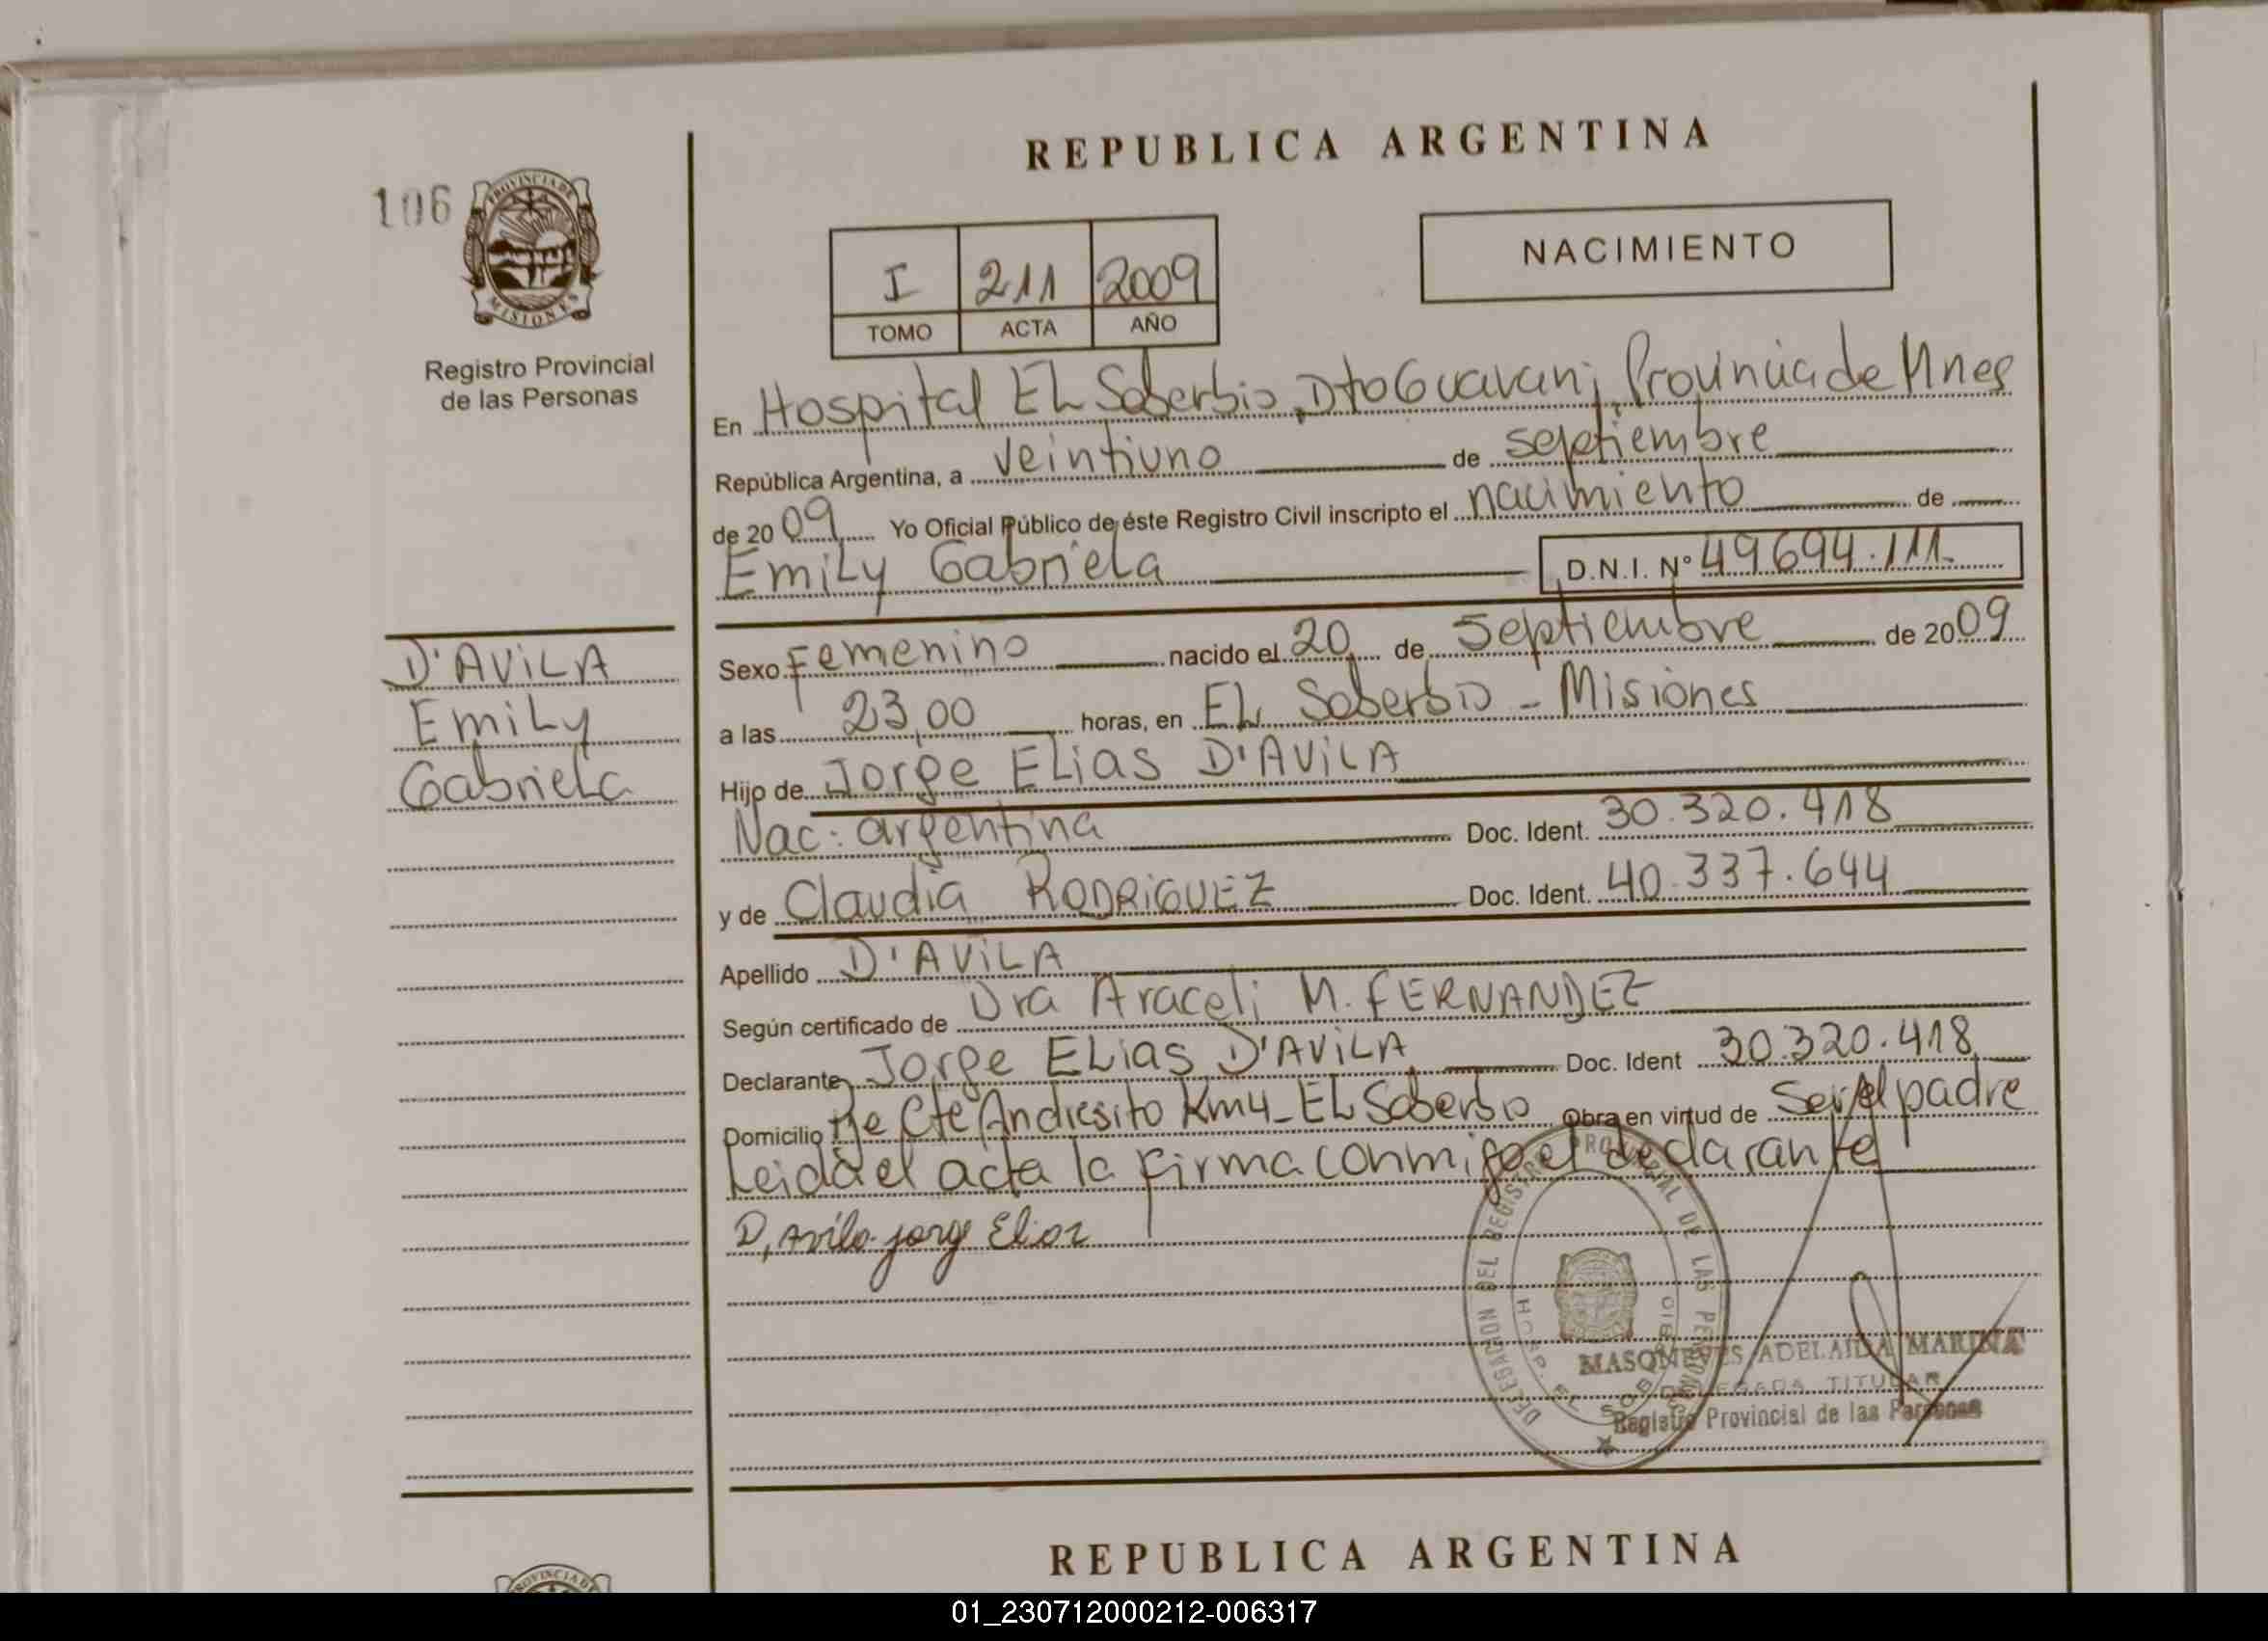 REPUBLICA ARGENTINA
106
PROVINCIA DE
MISIONES
Registro Provincial
de las Personas
NACIMIENTO
I 211 2009
TOMO ACTA AÑO
En Hospital EL Soberbio, Dto Guarani, Provincia de Mnes
República Argentina, a veintiuno de septiembre
de 2009 Yo Oficial Público de éste Registro Civil inscripto el nacimiento de
Emily Gabriela D.N.I. Nº 49694.111.
D'AVILA
Emily
Gabriela
Sexo Femenino nacido el 20 de Septiembre de 2009
a las 23,00 horas, en EL Soberbio - Misiones
Hijo de Jorge ELias D'AVILA
Nac: argentina Doc. Ident. 30.320.418
y de Claudia RODRIGUEZ Doc. Ident. 40.337.644
Apellido D'AVILA
Según certificado de Dra Araceli M. FERNANDEZ
Declarante Jorge ELias D'AVILA Doc. Ident 30.320.418
Domicilio Pje Cte Andresito Km4_ EL Soberbio Obra en virtud de Ser el padre
Leida el acta la firma conmigo el declarante
D, Avila jorg Elias
DELEGACION DEL REGISTRO PROVINCIAL DE LAS PERSONAS
HOSP. EL SOBERBIO
ADELAIDA MARINA
DELEGADA TITULAR
Registro Provincial de las Personas
REPUBLICA ARGENTINA
PROVINCIA DE
01_230712000212-006317